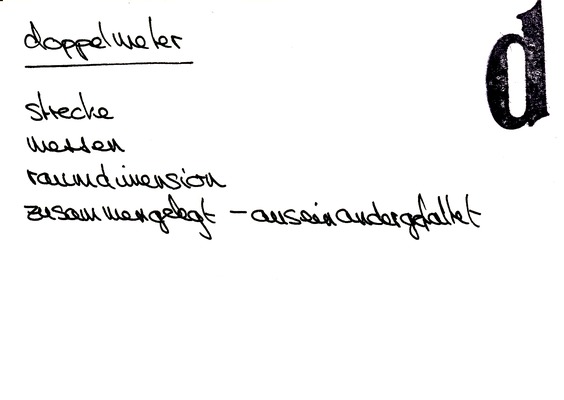 d
doppelmeter
strecke
messen
raumdimension
zusammengelegt – auseinandergefaltet